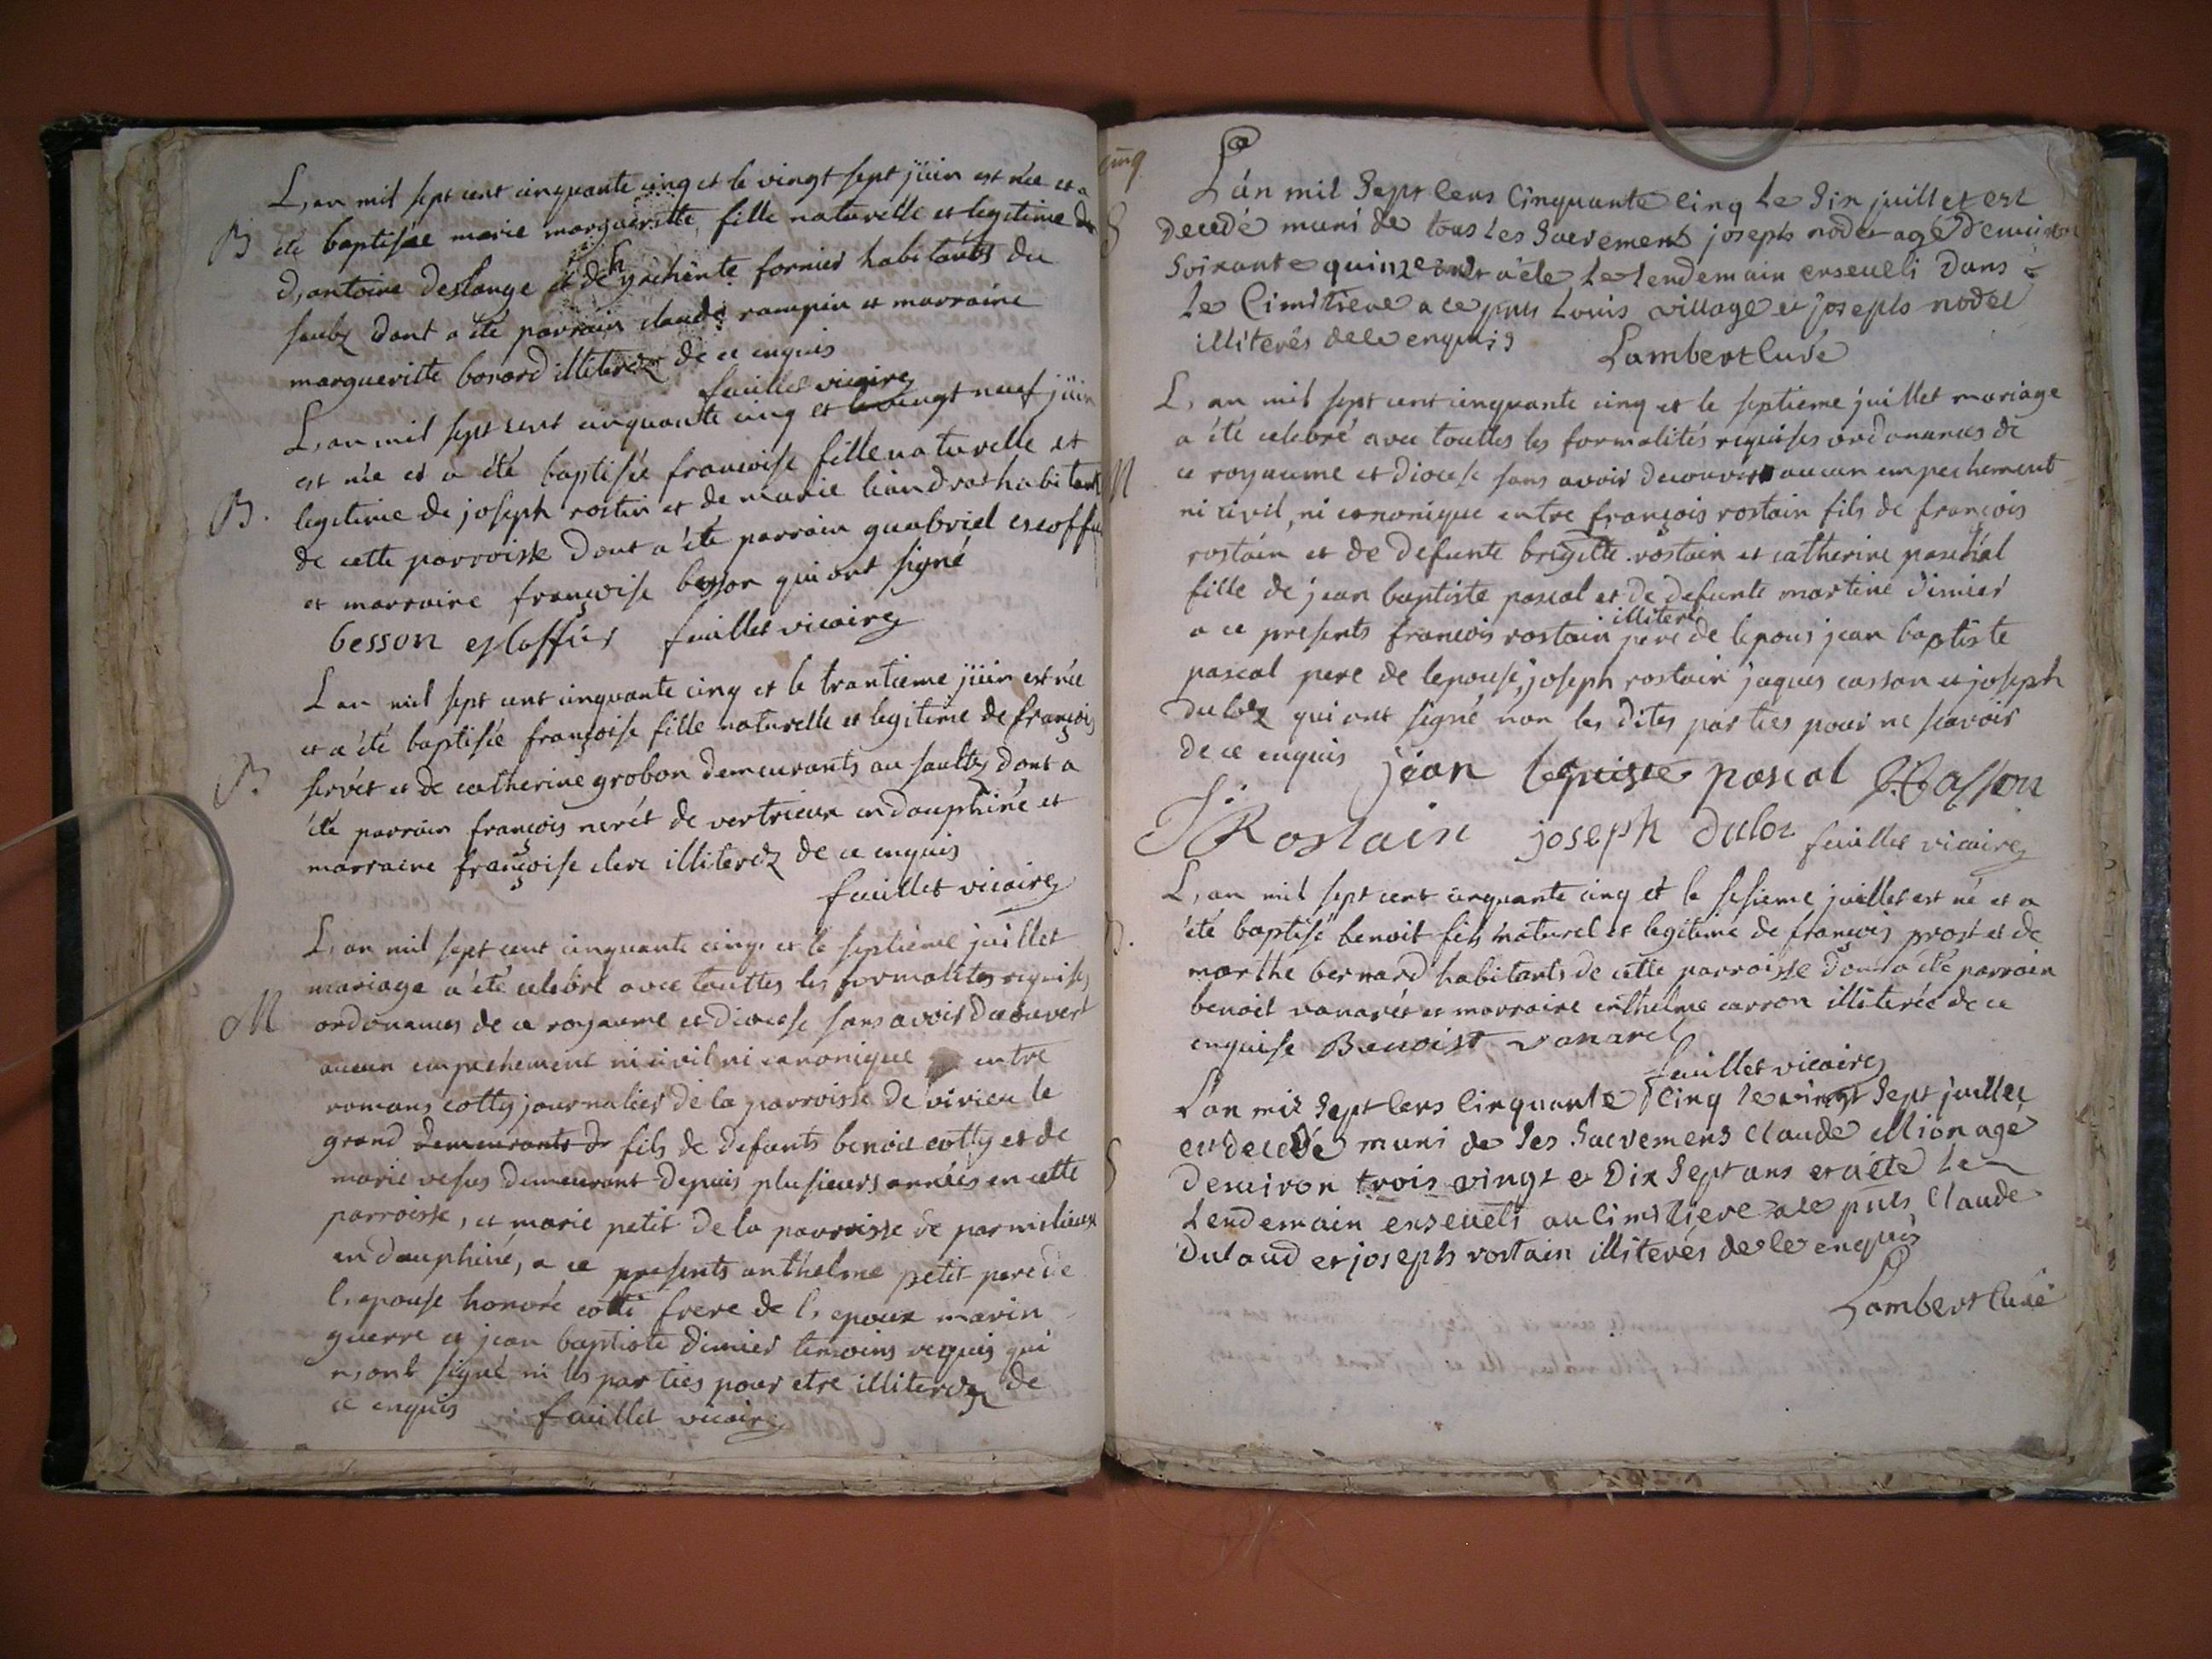 L,an mil sept cent cinquante cinq et le vingt sept juin est née et a
B été baptisée marie margueritte, fille naturelle et legitime de
d,antoine deslange et de hyachinte fornier habitants du
saulz dont a été parrain claude rampin et marraine
margueritte bonard illiterez de ce enquis
feuillet vicaire
L,an mil sept cent cinquante cinq et le vingt neuf juin
est née et a été baptisée francoise fille naturelle et
B. legitime de joseph rostin et de marie liandrat habitants
de cette parroisse dont a été parrain guabriel escoffier
et marraine françoise besson qui ont signé
besson escoffier feuillet vicaire
L an mil sept cent cinquante cinq et le trantieme juin est née
et a été baptisée françoise fille naturelle et legitime de françois
B servét et de catherine grobon demeurants au saultz dont a
été parrain françois nerét de vertrieux en dauphiné et
marraine françoise clere illiterez de ce enquis
feuillet vicaire
L,an mil sept cent cinquante cinq et le septieme juillet
mariage a été celebré avec touttes les formalités requises
M ordonances de ce royaume et diocese sans avoir decouvert
aucun empechement ni civil ni canonique entre
romans cotty journalier de la parroisse de virieu le
grand demeurants de fils de defunts benoit cotty et de
marie vesus demeurant depuis plusieurs années en cette
parroisse, et marie petit de la parroisse de parmilieux
en dauphiné, a ce presents anthelme petit pere de
l,epouse honoré cotti frere de l,epoux marin
guerre et jean baptiste dimier temoins requis qui
n,ont signé ni les parties pour etre illiterez de
ce enquis feuillet vicaire
cinq
L'an mil Sept Cens Cinquante Cinq Le Six juillet est
S decedé muni de tous Les Sacremens joseph nodet agé d'environ
Soixante quinze ans et a été Le Lendemain enseveli Dans
Le Cimitiere a ce pnts Louis village et joseph nodet
illiterés de ce enquis Lambert Curé
L, an mil sept cent cinquante cinq et le septieme juillet mariage
a été celebré avec touttes les formalités requises ordonances de
M ce royaume et diocese sans avoir decouvert aucun empechement
ni civil, ni canonique entre françois rostain fils de francois
rostain et de defunte brigitte rostain et catherine paschal
fille de jean baptiste pascal et de defunte martine dimier
a ce presents francois rostain illiteré pere de lepoux jean baptiste
pascal pere de lepouse, joseph rostain jaques casson et joseph
duloz qui ont signé non les dites parties pour ne scavoir
de ce enquis jean baptiste pascal J Casson
J Rostain joseph duloz feuillet vicaire
L,an mil sept cent cinquante cinq et le sesieme juillet est né et a
B. été baptisé benoit fils naturel et legitime de françois prost et de
marthe bernard habitants de cette parroisse dont a été parrain
benoit vanarét et marraine enthelme carron illiterée de ce
enquise Benoist vanaret
feuillet vicaire
L'an mil Sept Cens Cinquante Cinq Le vingt Sept juillet
est decedé muni de Ses Sacremens Claude Mion agé
S d'environ trois vingt et Dix Sept ans et a été Le
Lendemain enseveli au Cimitiere a ce pnts Claude
Dulaud et joseph rostain illiterés de ce enquis
Lambert Curé